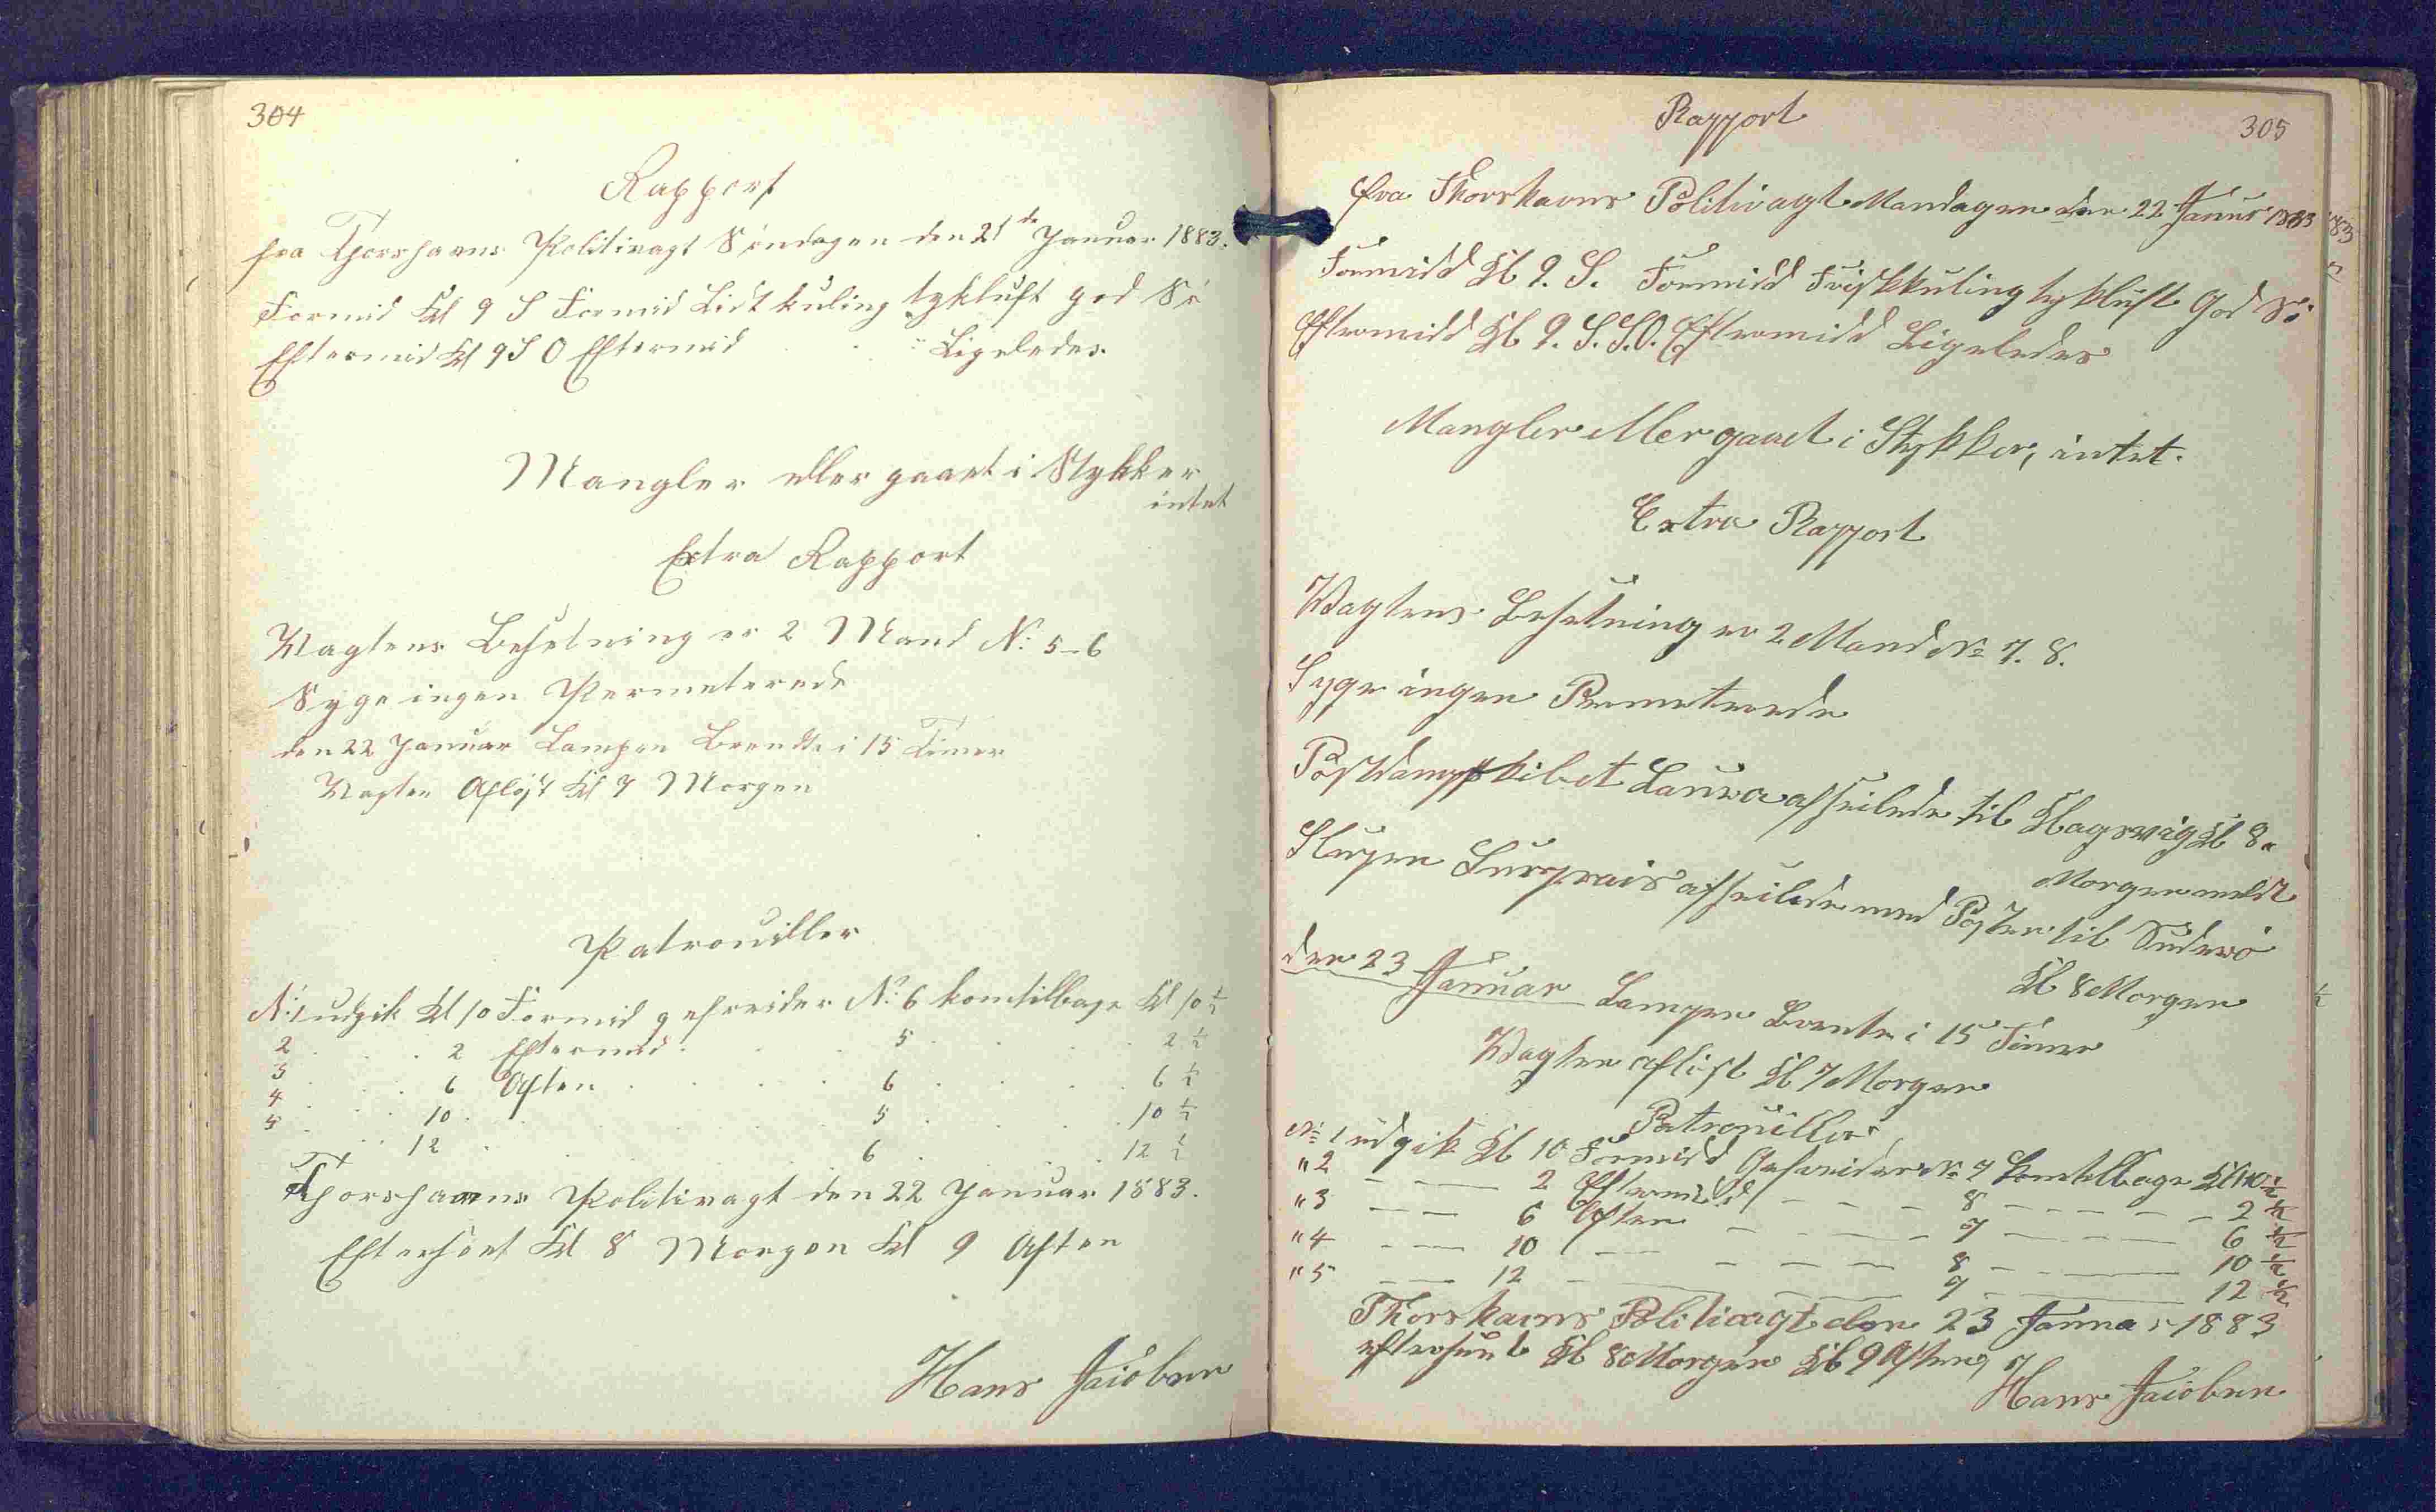 304
Rapport
fra Thorshavns Politivagt Söndagen den 21de Januar 1883.
Formid Kl 9 S Formid Lidt kuling tykluft god Sö
Eftermid Kl 9 S O Eftermid Ligeledes.
Mangler eller gaaet i Stykker
intet
Extra Rapport
Wagtens Besetning er 2 Mand No 5-6
Syge ingen Permeterede
den 22 Januar Lampen Brendte i 15 Timer
Wagten Aflöst Kl 7 Morgen
Patrouiller
No 1 udgik Kl 10 Formid gefreider No 6 kom tilbage Kl 10 1/2
2 . . . 2 Eftermid . . 5 . . . 2 1/2
3 . . . 6 Aften . . . 6 . . . 6 1/2
4 . . . 10 . . . 5 . . . 10 1/2
5 . . . 12 . . . 6 . . . 12 1/2
Thorshavns Politivagt den 22 Januar 1883.
Efterseet Kl 8 Morgen Kl 9 Aften
Hans Jacobsen
Rapport
305
fra Thorshavns Politivagt Mandagen den 22 Januar 1883
Formidd Kl 9. S. Formidd Friskkuling tykluft God Sö
Eftermidd Kl 9. S.S.O. Eftermidd Ligeledes
Mangler eller gaaet i Stykker, intet.
Extra Rapport
Wagtens Besetning er 2 Mand No 7. 8.
Syge ingen Permeterede
Postdampskibet Laura afseilede til Klagsvig Kl 8.
Morgen
Slupen Surprais afseilede med Posten til Suderö
Kl 8 Morgen
den 23 Januar Lampen Brente i 15 Timer
Wagten aflöst Kl 7 Morgen
Patrouiller
No 1 udgik Kl 10 Formidd Gefreider No 7 kom tilbage Kl 10 1/2
"2 — — 2 Eftermidd — — 8 — — 2 1/2
"3 — — 6 Aften — — 7 — — 6 1/2
"4 — — 10 — — 8 — — 10 1/2
"5 — — 12 — — 7 — — 12 1/2
Thorshavns Politivagt den 23 Januar 1883
efterseet Kl 8 Morgen Kl 9 Aften
Hans Jacobsen